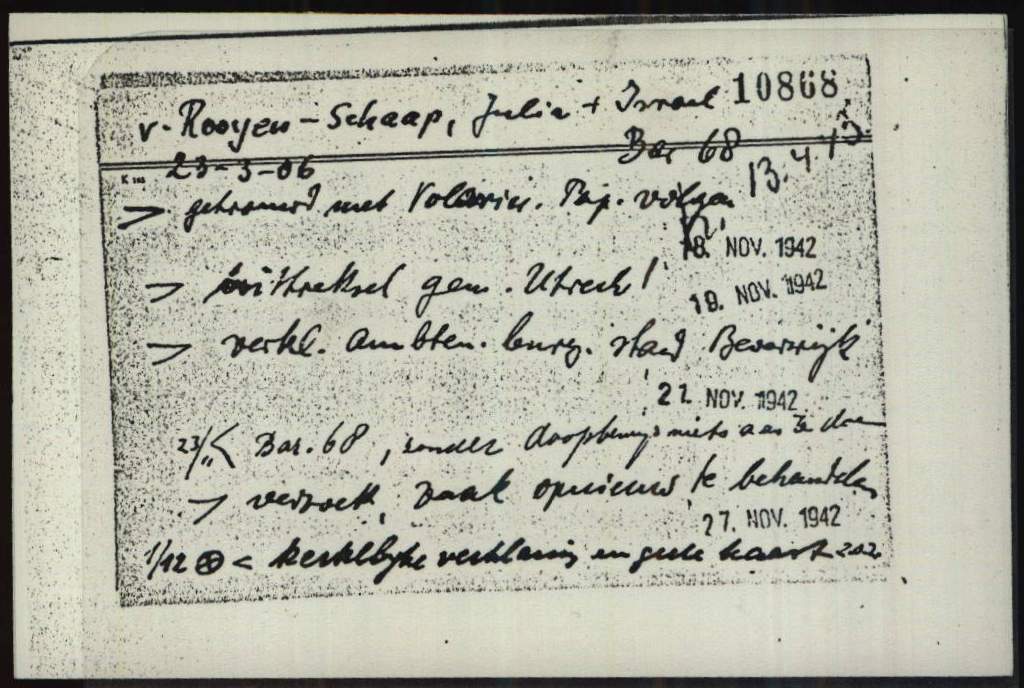 10868
v. Rooyen - Schaap, Julia + Israel
Bar 68
23-3-06
13.4.13
K 183
→ getrouwd met Volariër. Pap. volgen
18. NOV. 1942
→ uittreksel gem. Utrecht
19. NOV. 1942
→ verkl. ambten. burg. stand Beverwijk
21. NOV. 1942
23/11 < Bar. 68, zonder doopbewijs niets aan te doen
→ verzoek, zaak opnieuw te behandelen
27. NOV. 1942
1/12 ⊗ < kerkelijke verklaring en gele kaart z.o.z.